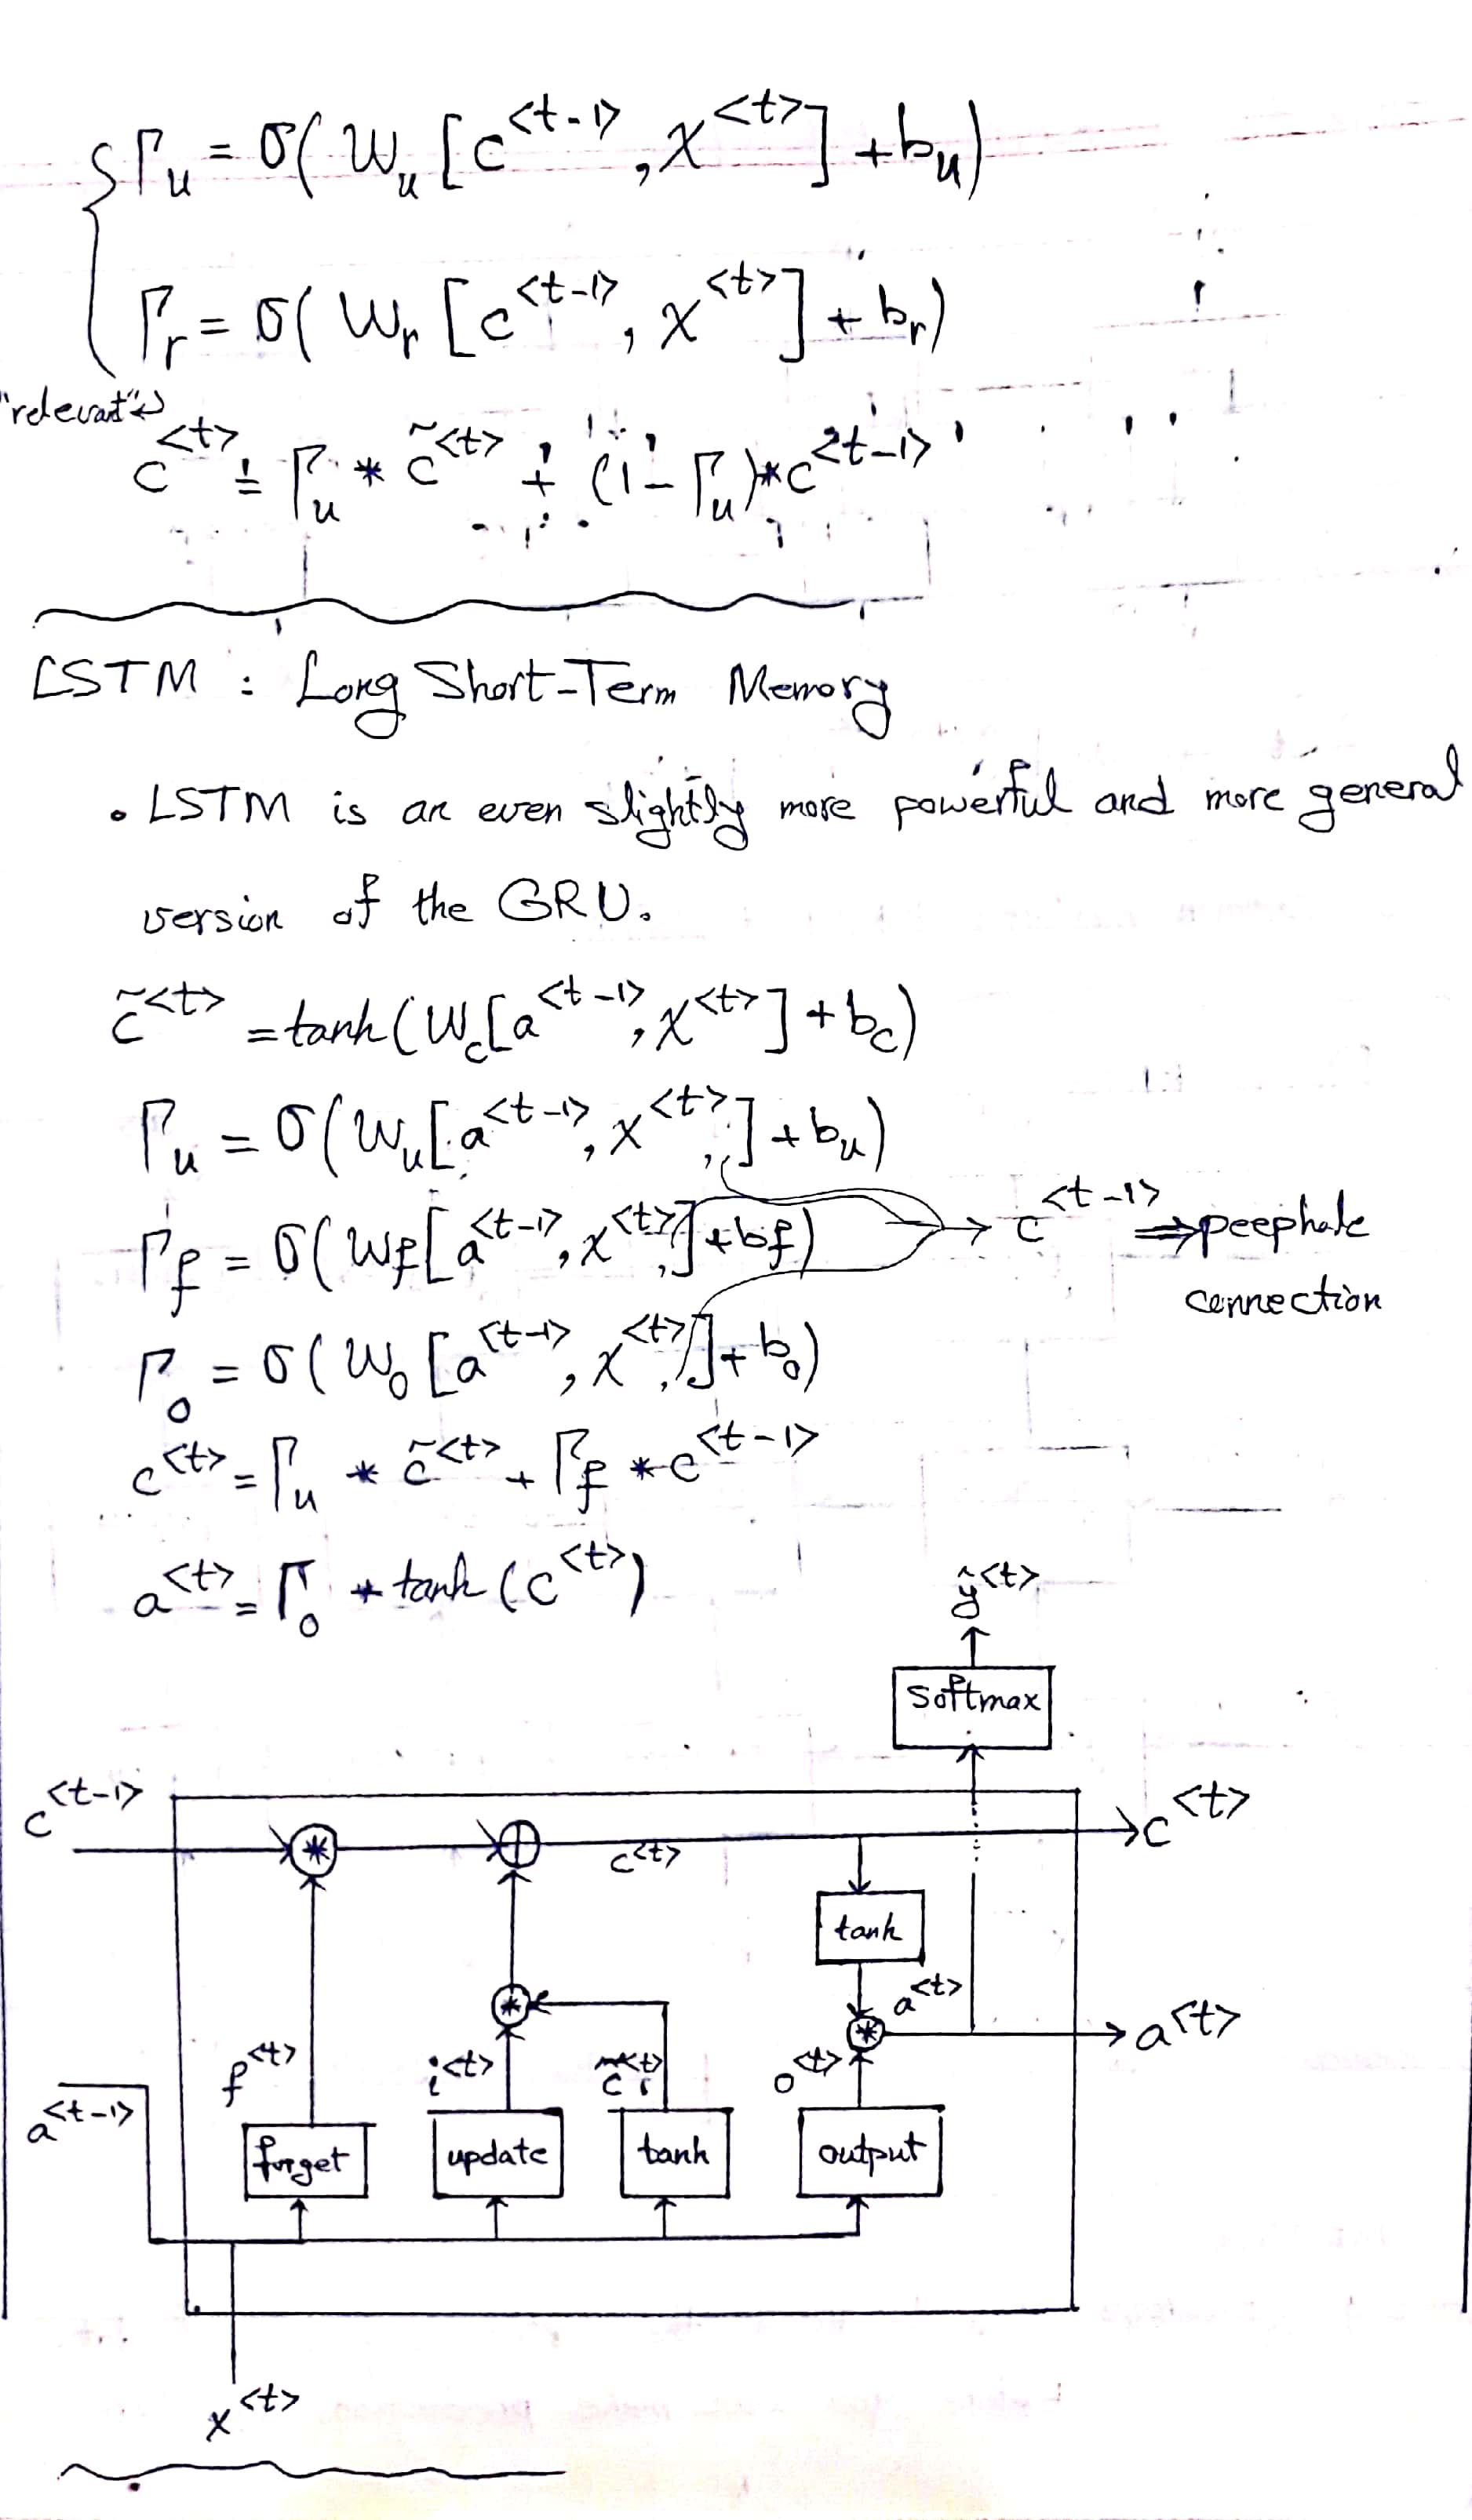 Γu = σ( Wu [ c<t-1> , x<t> ] + bu )
Γr = σ( Wr [ c<t-1> , x<t> ] + br )
"relevant"
c<t> = Γu * c̃<t> + (1 - Γu) * c<t-1>
LSTM : Long Short-Term Memory
• LSTM is an even slightly more powerful and more general
version of the GRU.
c̃<t> = tanh( Wc [ a<t-1> , x<t> ] + bc )
Γu = σ( Wu [ a<t-1> , x<t> , ] + bu )
Γf = σ( Wf [ a<t-1> , x<t> , ] + bf ) → c<t-1> ⇒ peephole
connection
Γo = σ( Wo [ a<t-1> , x<t> , ] + bo )
c<t> = Γu * c̃<t> + Γf * c<t-1>
a<t> = Γo * tanh ( c<t> )
ŷ<t>
Softmax
c<t-1>
*
+
c<t>
c<t>
tanh
*
*
a<t>
a<t>
f<t>
i<t>
c̃<t>
o<t>
a<t-1>
forget
update
tanh
output
x<t>